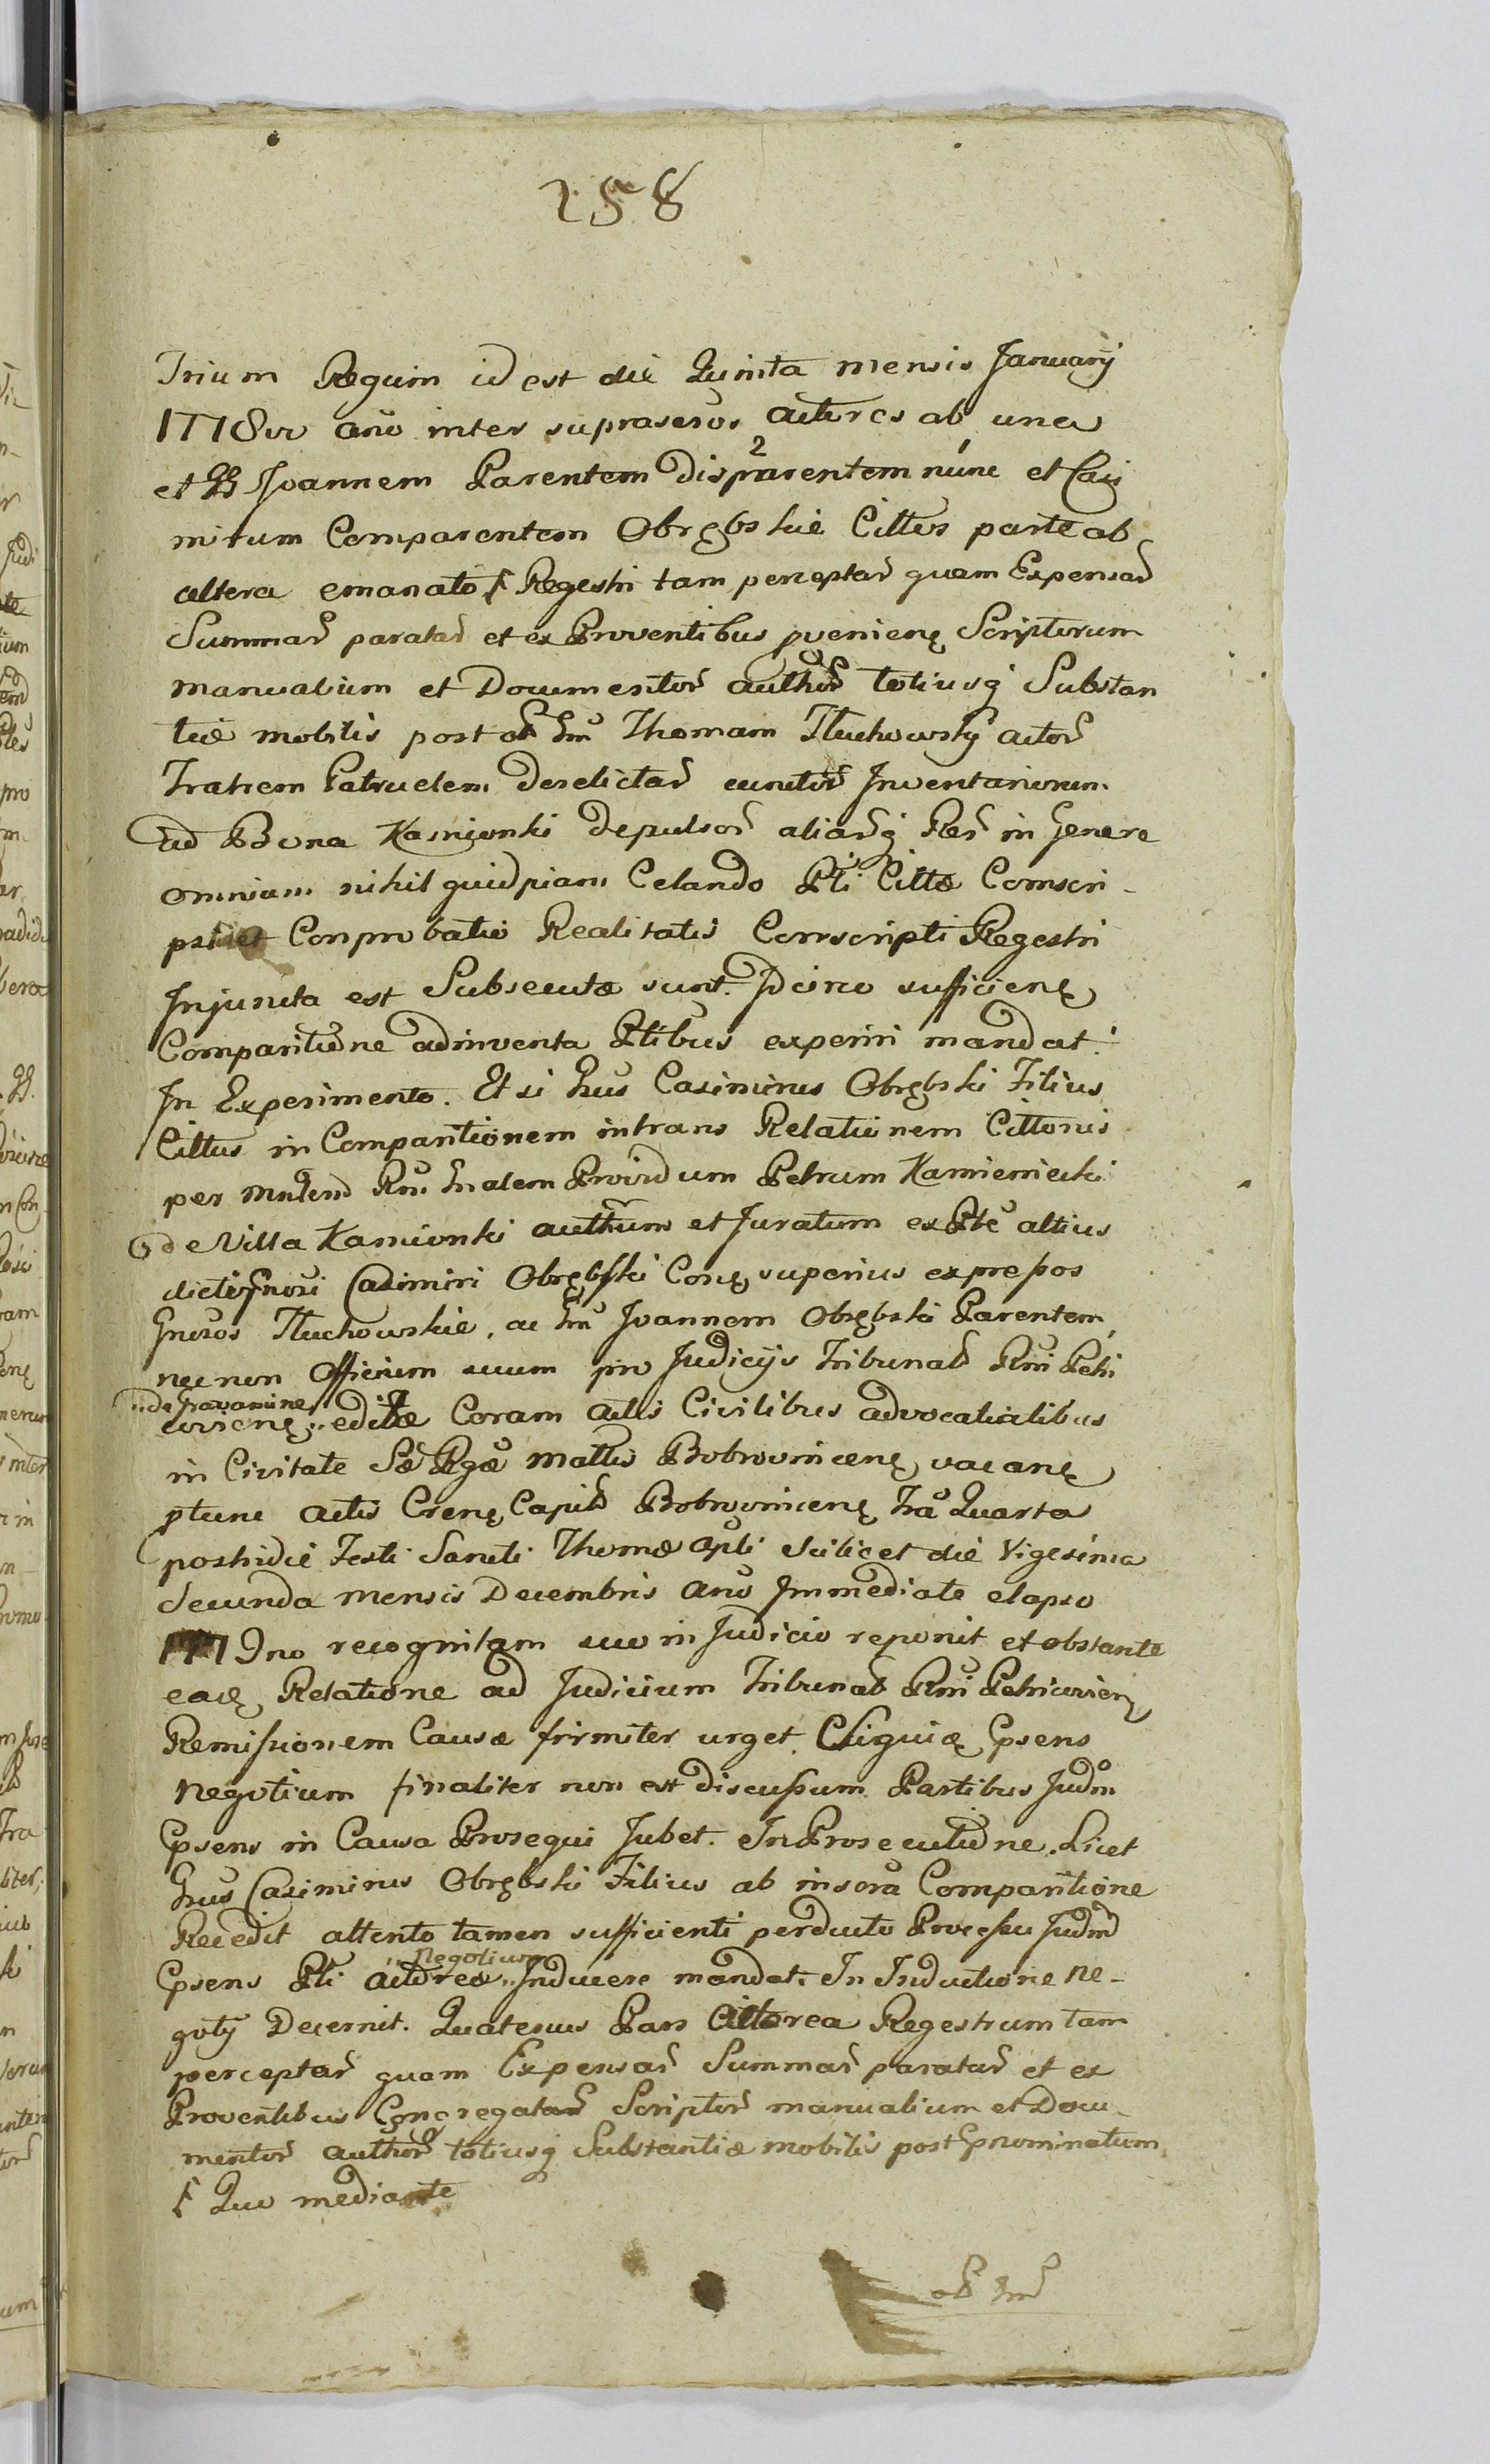 258
Trium Regum id est die Quinta mensis Januarij
1778vo año inter suprascros actores ab una
et GG Joannem Parentem disparentem nunc et Casi
mirum Comparentem Obrębskie Cittos parte ab
altera emanato ƒ Regestri tam perceptar quam Expensar
Summar paratar et ex Proventibus pvenienę Scripturum
manualium et Documentor author totiusq Substan
tiæ mobilis post ol Gm Thomam Tłuchowsky actor
Fratrem Patruelem derelictar cunctor Inventariorum
ad Bona Kamionki depulsor aliarq Rer in Genere
omnium nihil quidpiam Celando Pti Cittæ Comscri-
psit et Conprobatio Realitatis Conscripti Regestri
Injuncta est Subsecutæ sunt. Idcirco sufficienę
Comparitione adinventa Ptibus experiri mandat.
In Experimento. Et si Gnus Casimirus Obrębski Filius
Cittus in Comparitionem intrans Relationem Cittonis
per Mnstend Rni Gnalem Providum Petrum Kamieniecki
de Villa Kamionki authum et Juratum ex Pte altius
dicti Gnosi Casimiri Obrębski Conę superius expressos
Gnosos Tłuchowskie, ac Gm Joannem Obrębski Parentem
necnon Officium suum pro Judicijs Tribunal Rni Petri
coviene :de Gravamine: editæ Coram Actis Civilibus advocatialibus
in Civitate Sæ Rgæ Mattis Bobrovnicenę vacanę
ptunc Actis Crenę Capit Bobrovnicenę Fra Quarta
postridie Festi Sancti Thomæ Apli scilicet die Vigesima
Secunda Mensis Decembris Año Immediate elapso
1779no recognitam suo in Judicio reponit et obstante
eaę Relatione ad Judicium Tribunal Rni Petricovienę
Remissionem Causæ firmiter urget Psens
negotium finaliter non est discussum Partibus Judm
Psens in Causa Prosequi Jubet. In Prosecutione. Licet
Gnus Casimirus Obrębski Filius ab insora Comparitione
Recedit attento tamen sufficienti perducto Processu Judm
Psens Pti actoreæ :Negotium: Inducere mandat. In Inductione ne-
gotij Decernit. Quatenus Pars Actorea Regestrum tam
perceptar quam Expensar Summar paratar et ex
Proventibus Congregatar Scriptor manualium et Docu-
mentor author totiusq Substantiæ mobilis post Pnominatum
ƒ Quo mediante
ol Gm